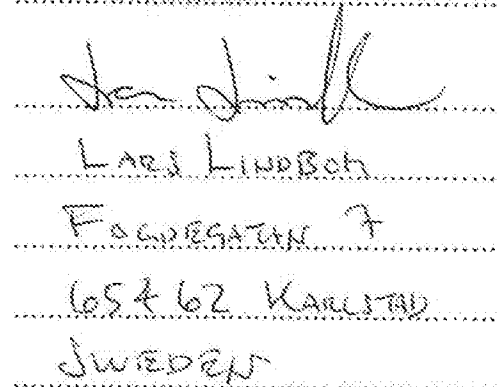 LARS LINDBOM
FOGDEGATAN 7
654 62 KARLSTAD
SWEDEN